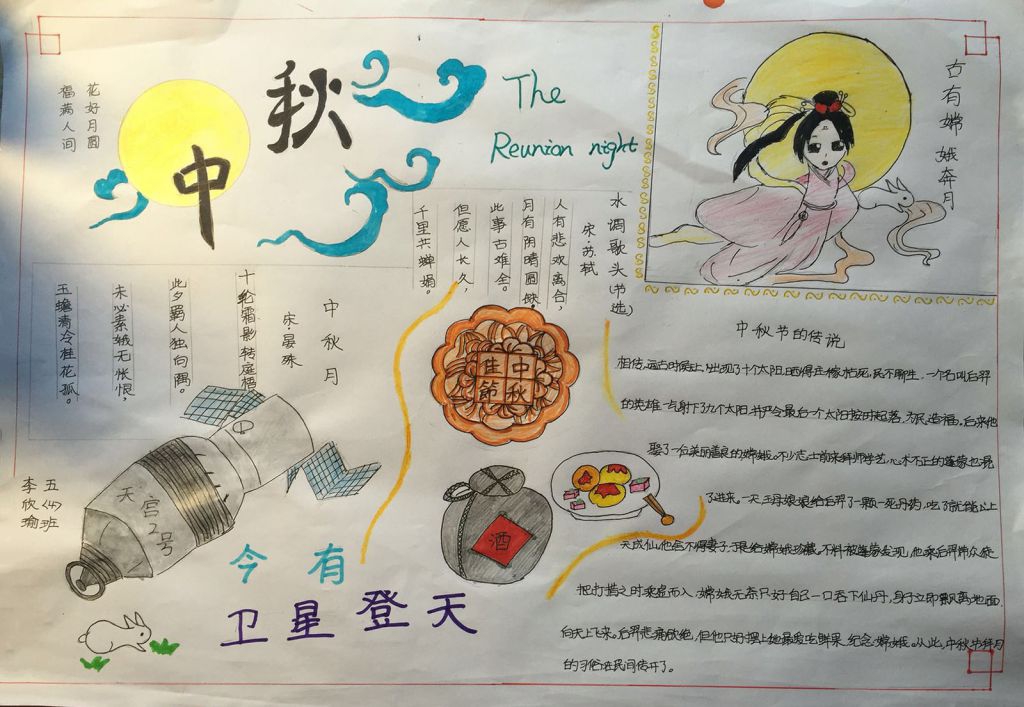 花好月圆
福满人间
中秋
The
Reunion night
古有嫦娥奔月
水调歌头(节选)
宋·苏轼
人有悲欢离合，
月有阴晴圆缺，
此事古难全。
但愿人长久，
千里共婵娟。
中秋月
宋·晏殊
十轮霜影转庭梧
此夕羁人独向隅。
未必素娥无怅恨，
玉蟾清冷桂花孤。
中秋
佳節
酒
中
天宫2号
五〈4〉班
李欣瑜
今有
卫星登天
中秋节的传说
相传,远古时候天上出现了十个太阳,晒得庄稼枯死,民不聊生,一个名叫后羿
的英雄一气射下了九个太阳,并严令最后一个太阳按时起落,为民造福。后来他
娶了一位美丽善良的嫦娥。不少志士前来拜师学艺,心术不正的逢蒙也混
了进来。一天王母娘娘给后羿了一颗一死丹药,吃了就能以上
天成仙,他舍不得妻子,于是给嫦娥珍藏。不料被逢蒙发现,他来后羿带众徒
把打猎之时乘虚而入,嫦娥无奈只好自己一口吞下仙丹,身子立即飘离地面
向天上飞来。后羿悲痛欲绝,但他只好摆上她最爱吃鲜果,纪念嫦娥。从此,中秋节拜月
的习俗在民间传开了。